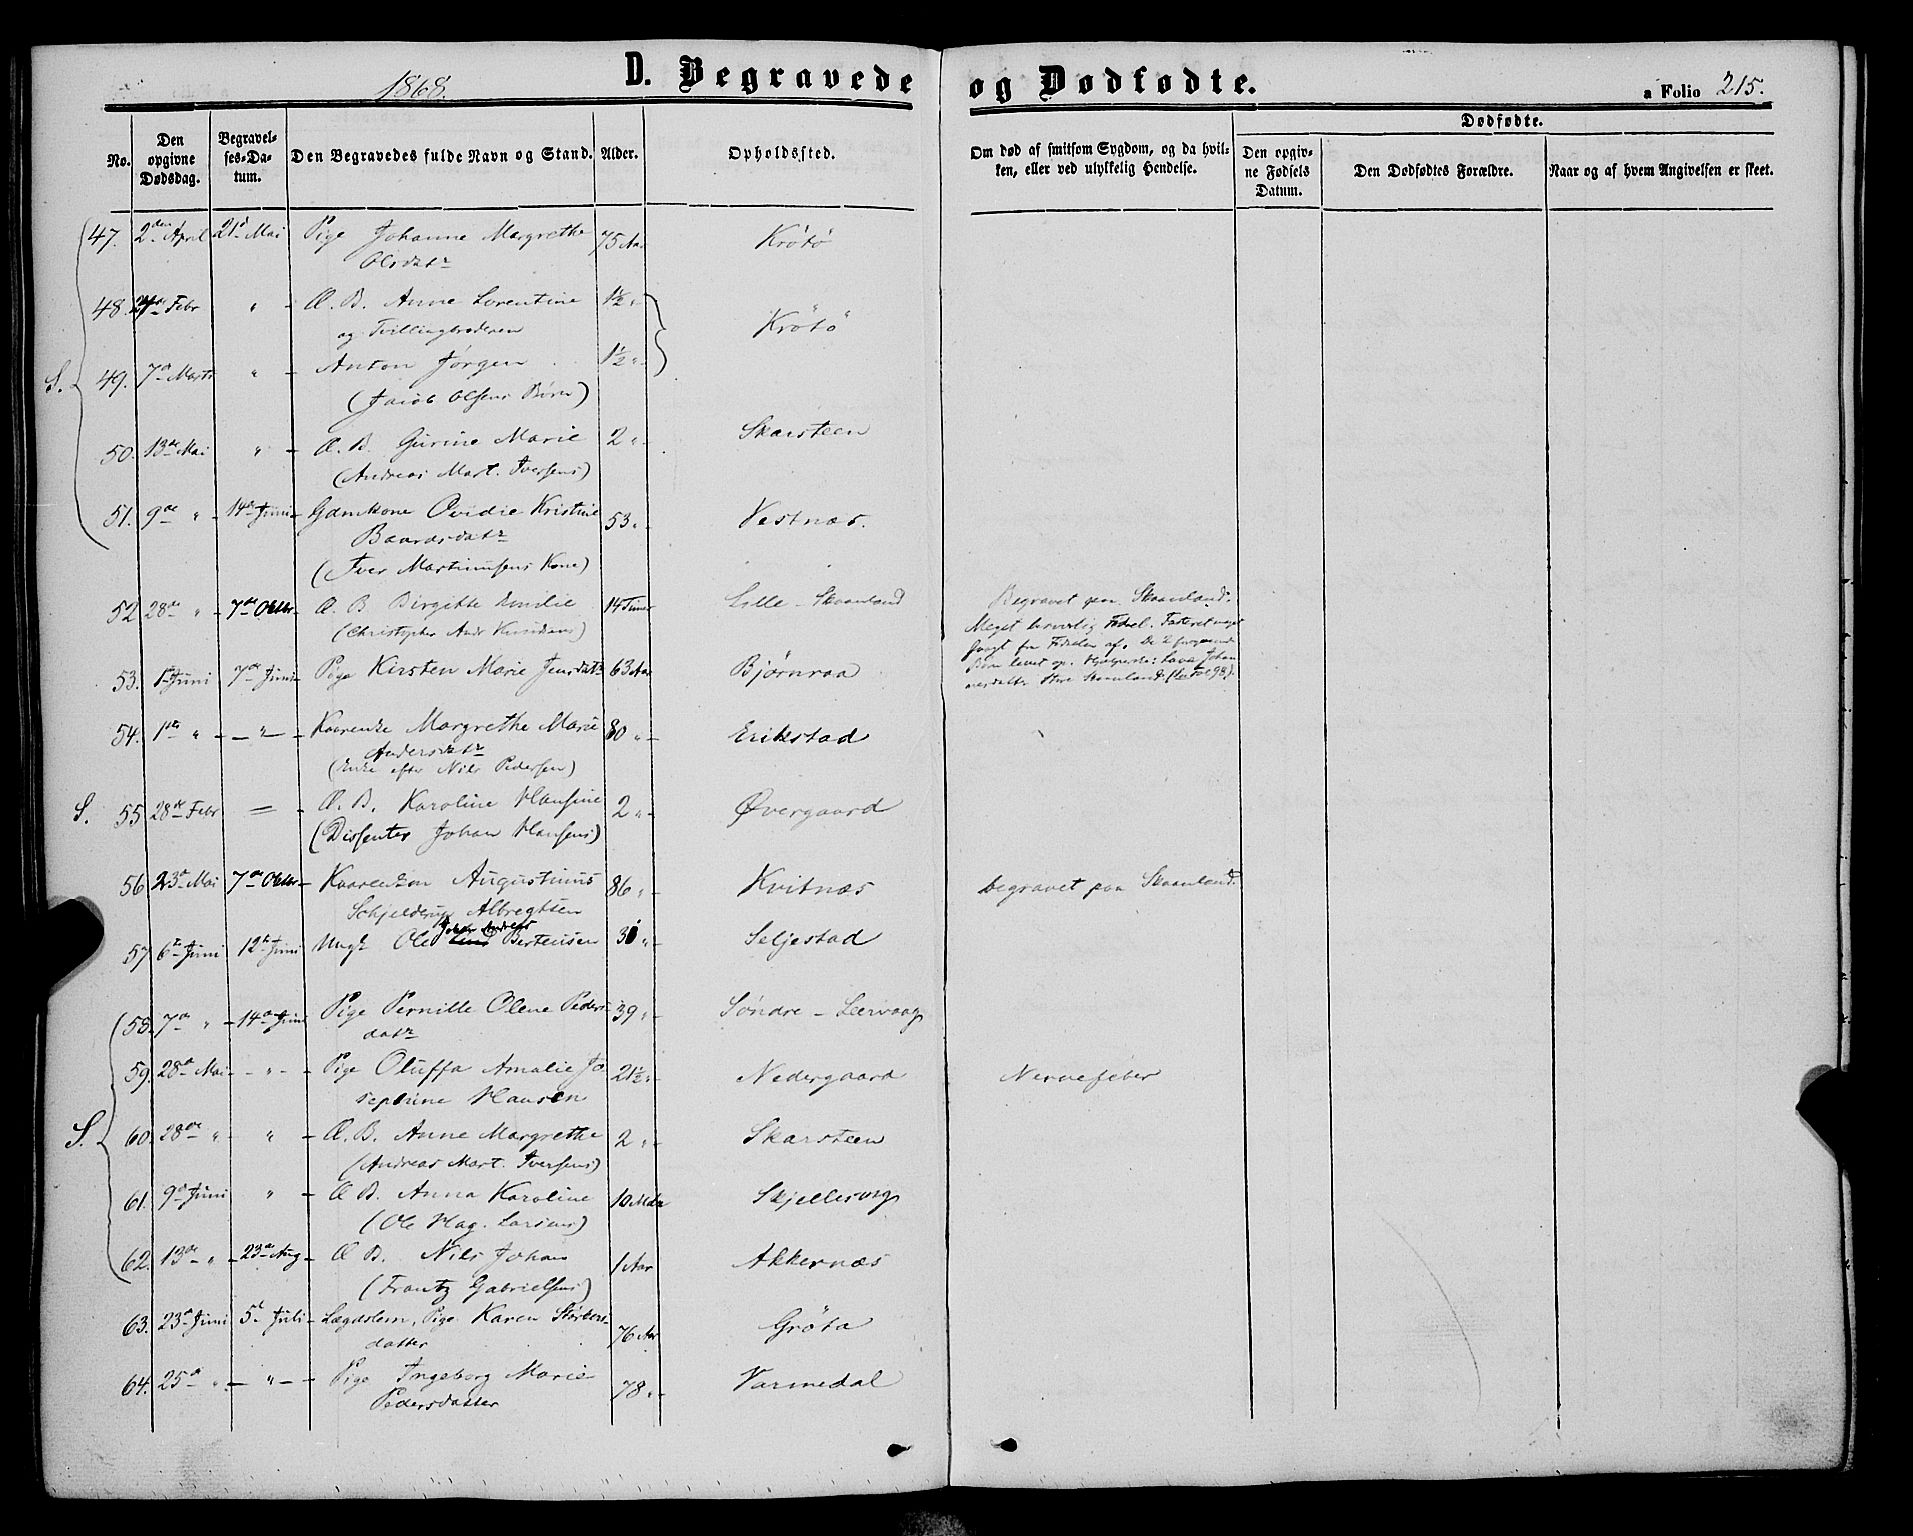 1868.
D. Begravede og Dødfødte.
a Folio 215.
No.
Den opgivne Dødsdag.
Begravelses-Datum.
Den Begravedes fulde Navn og Stand.
Alder.
Opholdssted.
Om død af smitsom Sygdom, og da hvilken, eller ved ulykkelig Hendelse.
Dødfødte.
Den opgivne Fødsels Datum.
Den Dødfødtes Forældre.
Naar og af hvem Angivelsen er skeet.
47. 2den April 21d Mai Pige Johanne Margrethe 75 Aar Krötö
Olsdatr
48. Febr " - Æ. B. Anne Lorentine 1½ " Krötö
og Tvillingbroderen
S. 49. 7de Marts " - Anton Jörgen 1½ "
(Jacob Olsens Börn)
50. 13de Mai " - Æ. B. Gurine Marie 2 " Skarsteen
(Andreas Mart. Iversens)
51. 9de " - 14de Juni - Gaardkone Ovidie Kristine 53 " Vestnæs.
Baardsdatr
(Iver Martinusens Kone)
52 28de " - 7de Oktbr - Æ. B. Birgitte Emilie 14 Timer Lille - Skaanland Begravet paa Skaanland.
(Christopher Andr Knudsens) Meget besværlig Födsel.
53. 1ste Juni 7de Juni - Pige Kirsten Marie Jensdatr 63 Aar Bjørnraa
Store Skaanland
54. 1ste " - " - Kaarenke Margrethe Marie 80 " - Erikstad
Andersdatr
(Enke efter Nils Pedersen)
S. 55 28de Febr = - Æ. B. Karoline Hansine 2 " - Øvergaard
(Dissenter Johan Hansens)
56 23d Mai 7de Oktbr - Kaarenkm Augustinus 86 " - Kvitnæs begravet paa Skaanland.
Schjelderup Albregtsen
57 6te Juni 12te Juni Ungk Ole Johan Andreas Bertensen 30 " - Seljestad
58. 7de " - 14de Juni Pige Pernille Olene Peders- 39 " - Söndre - Leervaag
datr
59. 28de Mai - " - Pige Oluffa Amalie Jo 21½ " - Nedergaard Nervefeber
sephine Hansen
S. 60. 28de " - " - Æ. B. Anne Margrethe 2 " - Skarsteen
(Andreas Mart. Iversens)
61. 9de Juni " - Æ B. Anna Karoline 10 Mdr Skjellesvig
(Ole Hag. Larsens)
62. 13de " - 23de Aug - Æ B. Nils Johan 1 Aar Akkernæs
(Frantz Gabrielsens)
63. 23de Juni 5te Juli - Lægdslem, Pige Karen Störkers- 76 Aar Gröta
datter
64. 25de " - " - Pige Ingeborg Marie 78 " - Varmedal
Pedersdatter